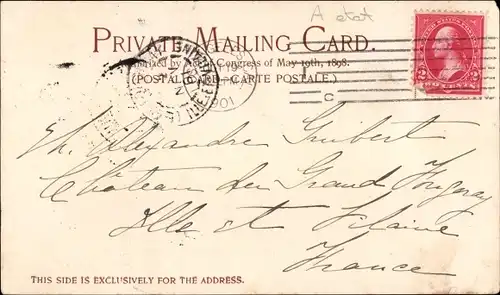 A etat
PRIVATE MAILING CARD.
Authorized by Act of Congress of May 19th, 1898.
(POSTAL CARD - CARTE POSTALE.)
1901
C
2 2
Alexandre Guibert
Château du Grand Fougeray
Ille et Vilaine
France
THIS SIDE IS EXCLUSIVELY FOR THE ADDRESS.